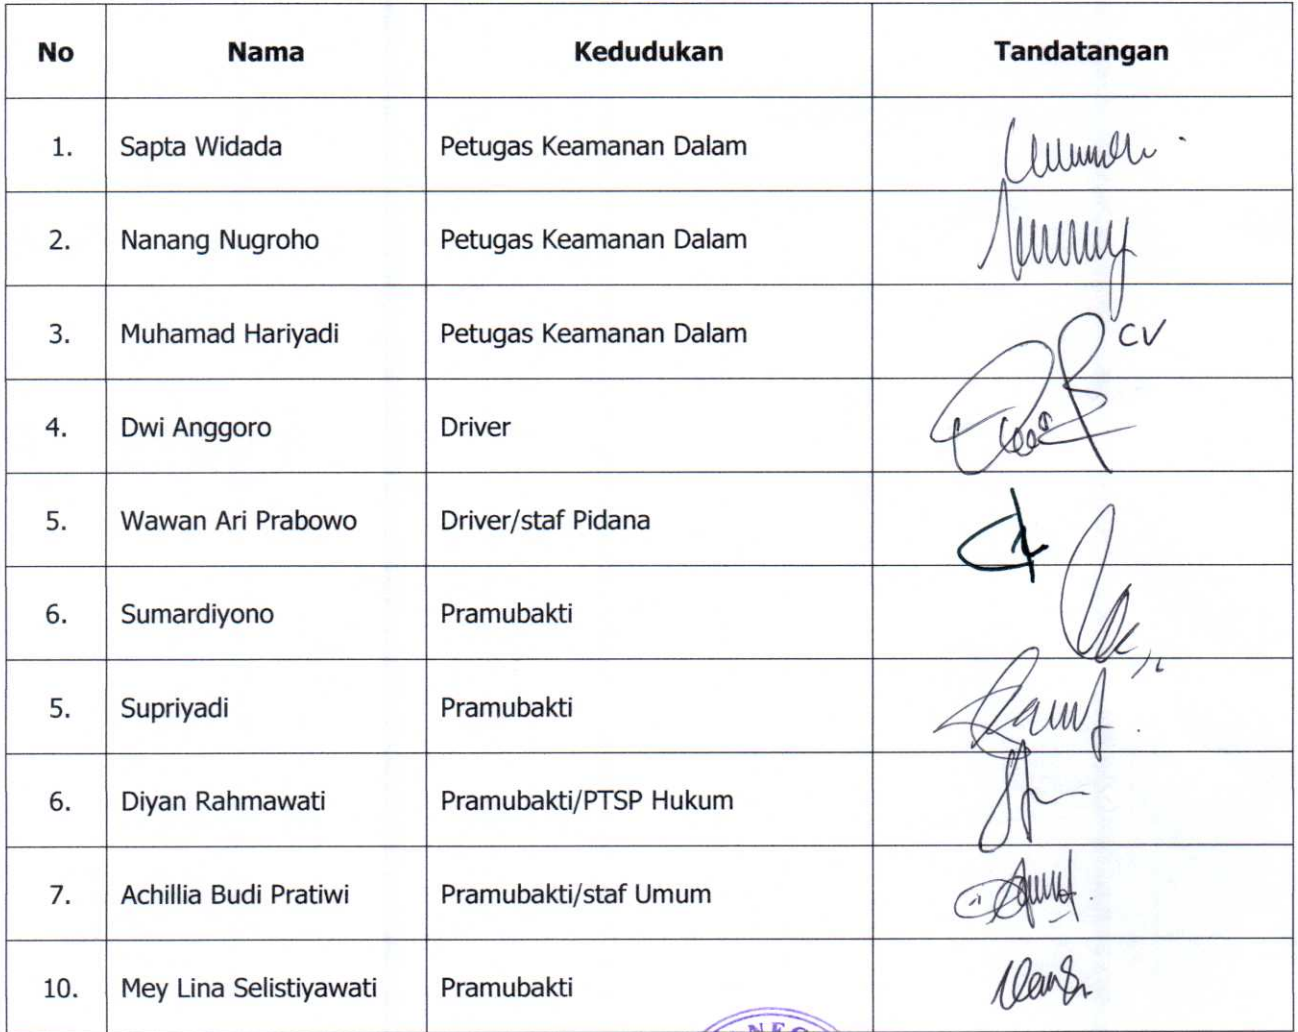 No Nama Kedudukan Tandatangan
1. Sapta Widada Petugas Keamanan Dalam
2. Nanang Nugroho Petugas Keamanan Dalam
3. Muhamad Hariyadi Petugas Keamanan Dalam CV
4. Dwi Anggoro Driver
5. Wawan Ari Prabowo Driver/staf Pidana
6. Sumardiyono Pramubakti
5. Supriyadi Pramubakti
6. Diyan Rahmawati Pramubakti/PTSP Hukum
7. Achillia Budi Pratiwi Pramubakti/staf Umum
10. Mey Lina Selistiyawati Pramubakti